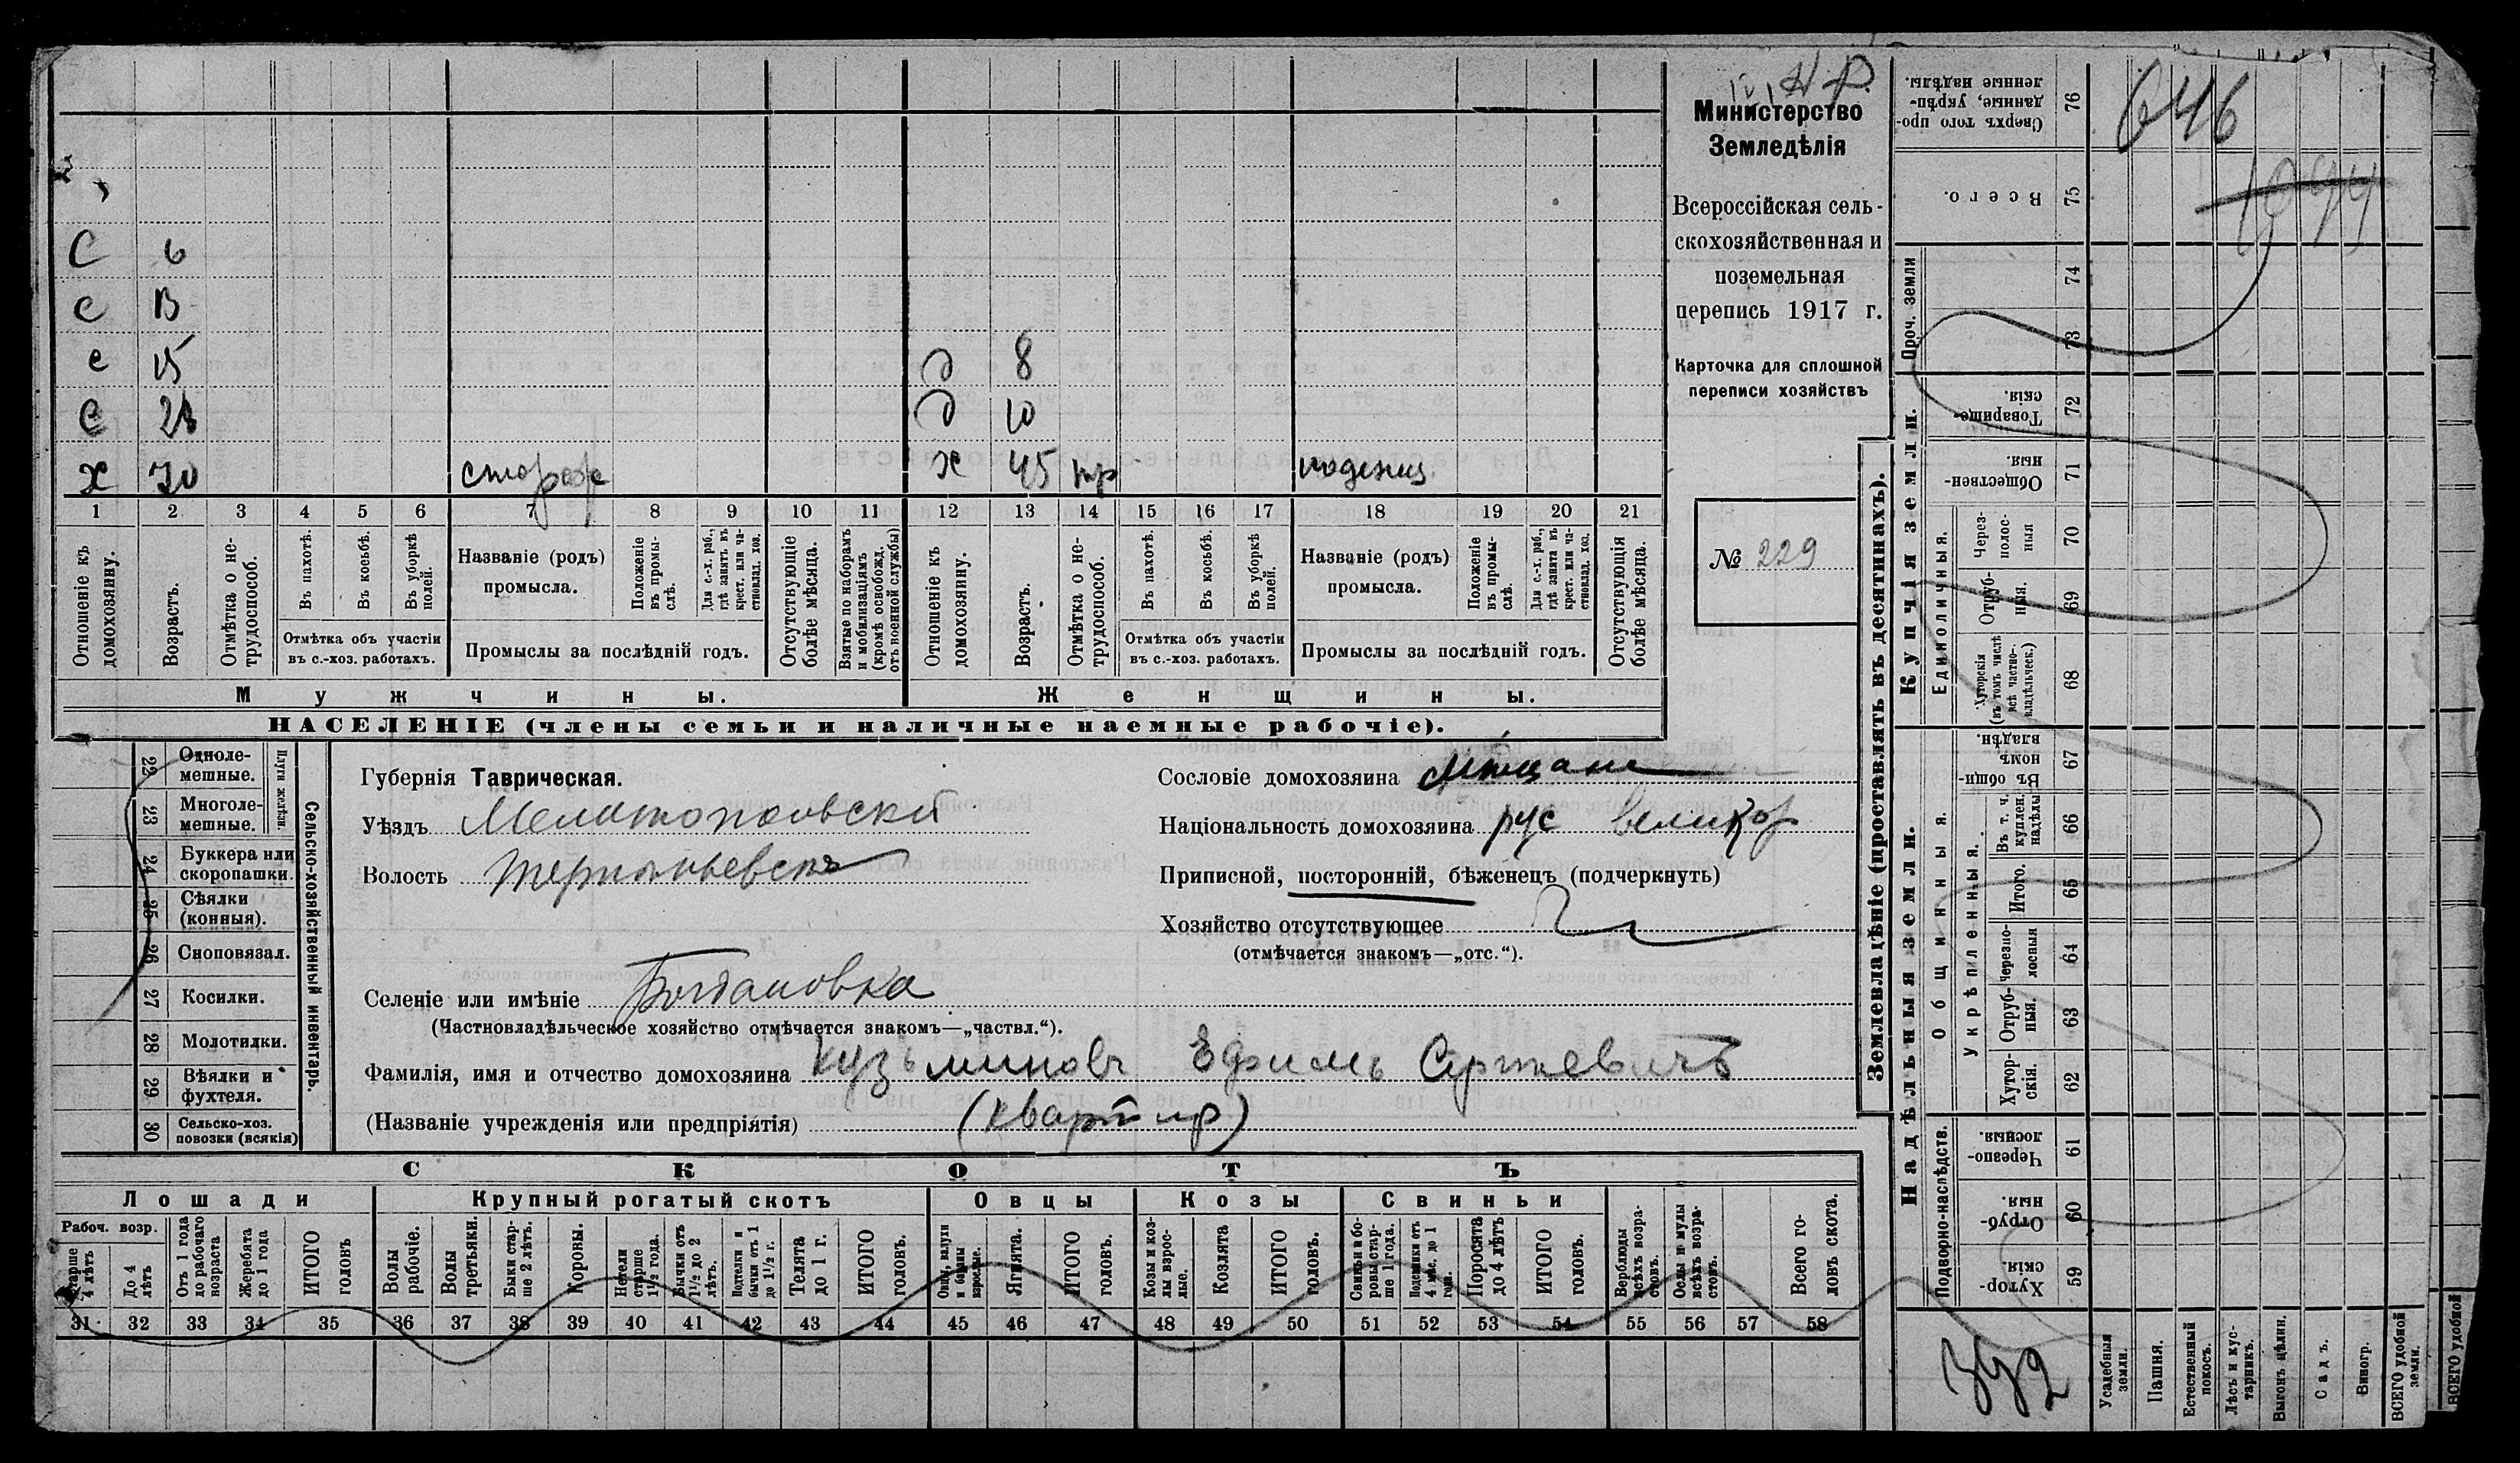 Министерство
Земледѣлія
Всероссійская сель-
скохозяйственная и
поземельная
перепись 1917 г.
Карточка для сплошной
переписи хозяйствъ
№ 229
С 6
с 13
с 15 д 8
с 23 д 10
х 70 сторож х 45 нр поденщ
1 2 3 4 5 6 7 8 9 10 11 12 13 14 15 16 17 18 19 20 21
Отношеніе къ домохозяину.
Возрастъ.
Отмѣтка о не-трудоспособ.
Въ пахотѣ.
Въ косьбѣ.
Въ уборкѣ полей.
Отмѣтка объ участіи
въ с.-хоз. работахъ.
Названіе (родъ)
промысла.
Положеніе въ промы-слѣ.
Для с.-х. раб., гдѣ занятъ въ крест. или ча-стновлад. хоз.
Промыслы за послѣдній годъ.
Отсутствующіе болѣе мѣсяца.
Взятые по наборамъ и мобилизаціямъ (кромѣ освобожд. отъ военной службы)
Отношеніе къ домохозяину.
Возрастъ.
Отмѣтка о не-трудоспособ.
Въ пахотѣ.
Въ косьбѣ.
Въ уборкѣ полей.
Отмѣтка объ участіи
въ с.-хоз. работахъ.
Названіе (родъ)
промысла.
Положеніе въ промы-слѣ.
Для с.-х. раб., гдѣ занятъ въ крест. или ча-стновлад. хоз.
Промыслы за послѣдній годъ.
Отсутствующія болѣе мѣсяца.
Мужчины. Женщины.
НАСЕЛЕНІЕ (члены семьи и наличные наемные рабочіе).
Сельско-хозяйственный инвентарь.
Плуги желѣзн.
22 Одноле-мешные.
23 Многоле-мешные.
24 Буккера или скоропашки.
25 Сѣялки (конныя).
26 Сноповязал.
27 Косилки.
28 Молотилки.
29 Вѣялки и фухтеля.
30 Сельско-хоз. повозки (всякія)
Губернія Таврическая.
Уѣздъ Мелитопольский
Волость
Селеніе или имѣніе Богдановка
(Частновладѣльческое хозяйство отмѣчается знакомъ—„частвл.“).
Фамилія, имя и отчество домохозяина Кузьминовъ Ефимъ Сергѣевичъ
(Названіе учрежденія или предпріятія) (квартир)
Сословіе домохозяина Мѣщане
Національность домохозяина рус великор
Приписной, посторонній, бѣженецъ (подчеркнуть)
Хозяйство отсутствующее
(отмѣчается знакомъ—„отс.“).
СКОТЪ
Лошади Крупный рогатый скотъ Овцы Козы Свиньи
Рабоч. возр.
Старше 4 лѣтъ
До 4 лѣтъ
Отъ 1 года до рабочаго возраста
Жеребята до 1 года
ИТОГО головъ
Волы рабочіе.
Волы третьяки.
Быки стар-ше 2 лѣтъ.
Коровы.
Нетели старше 1½ года.
Бычки отъ 1½ до 2 лѣтъ.
Подтелки и бычки отъ 1 до 1½ г.
Телята до 1 г.
ИТОГО головъ.
Овцы, валухи и бараны взрослые.
Ягнята.
ИТОГО головъ.
Козы и коз-лы взрос-лые.
Козлята
ИТОГО головъ.
Свиньи и бо-ровы стар-ше 1 года.
Подсвинки отъ 4 мѣс. до 1 года.
Поросята до 4 лѣтъ
ИТОГО головъ.
Верблюды всѣхъ возра-стовъ.
Ослы и мулы всѣхъ возра-стовъ.
Всего го-ловъ скота.
31 32 33 34 35 36 37 38 39 40 41 42 43 44 45 46 47 48 49 50 51 52 53 54 55 56 57 58
Землевладѣніе (проставлять въ десятинахъ).
Купчія земли.
Надѣльныя земли.
Проч. земли
Единоличныя.
Общинныя.
Укрѣпленныя.
Подворно-наслѣдств.
76 Сверхъ того про-данные, укрѣп-ленные надѣлы.
75 Всего.
74
73
72 Товарище-скія.
71 Обществен-ныя.
70 Через-полос-ныя
69 Отруб-ныя.
68 Хуторскія (въ томъ числѣ всѣ частно-владѣльческ.)
67 Въ общи-номъ владѣн.
66 Въ т. ч. куплен. надѣлы
65 Итого.
64 Черезпо-лосныя
63 Отруб-ныя.
62 Хутор-скія.
61 Черезпо-лосныя.
60 Отруб-ныя.
59 Хутор-скія.
Усадебныя земли.
Пашня.
Естественный покосъ.
Лѣсъ и кус-тарникъ.
Выгонъ цѣлин.
Садъ.
Виногр.
ВСЕГО удобной земли.
ВСЕГО удобной
646
1094
392